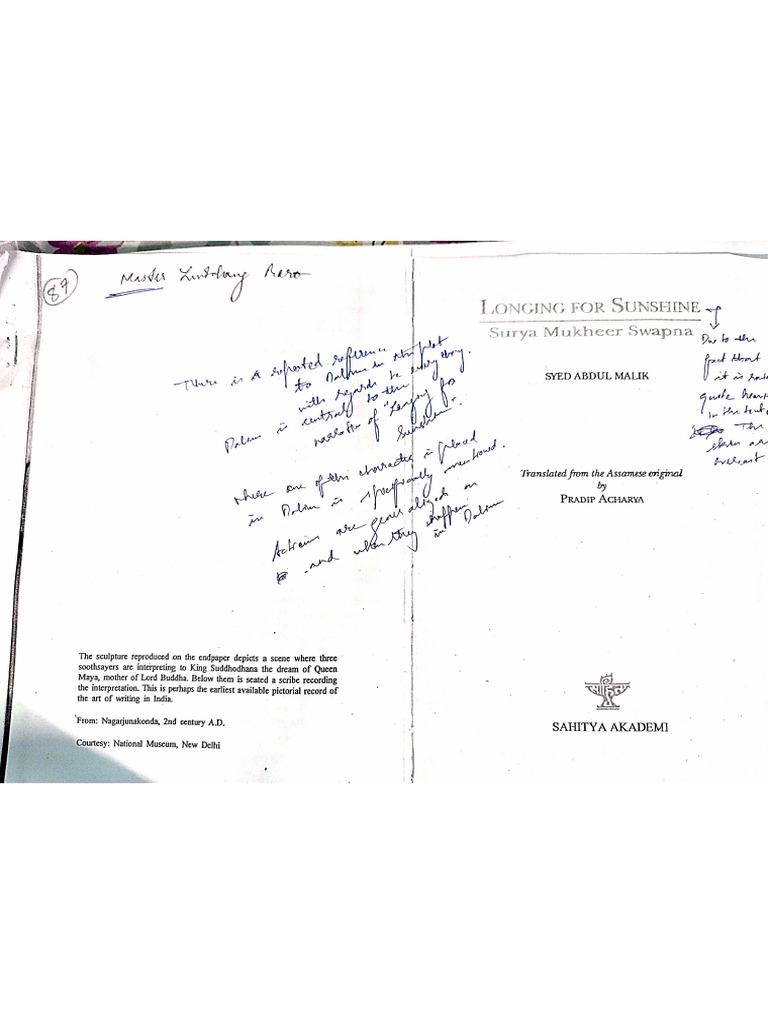 87
Master
There is a repeated reference
to Dalim in the plot
with regards to everything.
Dalim is central to the
narration of "Longing for
Sunshine".
where one of the character is placed
in Dalim is specifically mentioned.
Actions are generalized on
and when they happen
in Dalim
The sculpture reproduced on the endpaper depicts a scene where three
soothsayers are interpreting to King Suddhodhana the dream of Queen
Maya, mother of Lord Buddha. Below them is seated a scribe recording
the interpretation. This is perhaps the earliest available pictorial record of
the art of writing in India.
From: Nagarjunakonda, 2nd century A.D.
Courtesy: National Museum, New Delhi
LONGING FOR SUNSHINE
Surya Mukheer Swapna
SYED ABDUL MALIK
Translated from the Assamese original
by
PRADIP ACHARYA
SAHITYA AKADEMI
Due to the
fact that
it is
quote
in the text
The